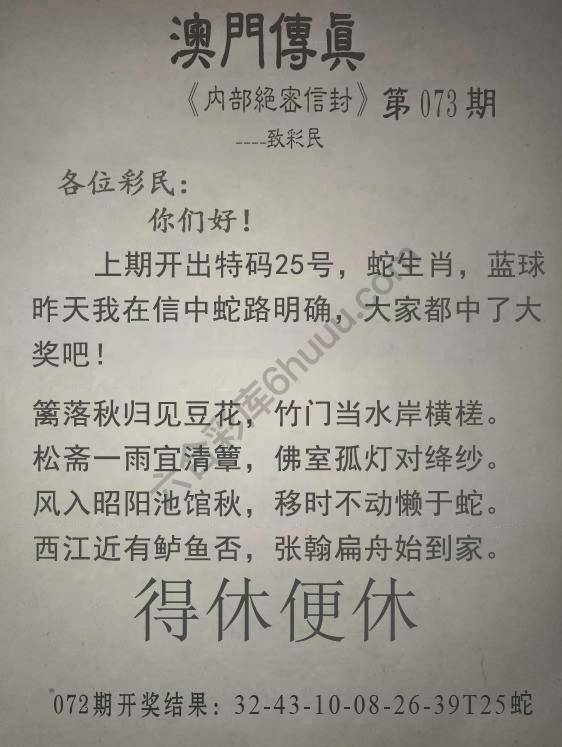 澳門傳真
《内部絕密信封》第073期
----致彩民
各位彩民：
你们好！
上期开出特码25号，蛇生肖，蓝球
昨天我在信中蛇路明确，大家都中了大
奖吧！
篱落秋归见豆花，竹门当水岸横槎。
松斋一雨宜清簟，佛室孤灯对绛纱。
风入昭阳池馆秋，移时不动懒于蛇。
西江近有鲈鱼否，张翰扁舟始到家。
得休便休
072期开奖结果：32-43-10-08-26-39T25蛇
六合彩库6huuu.com